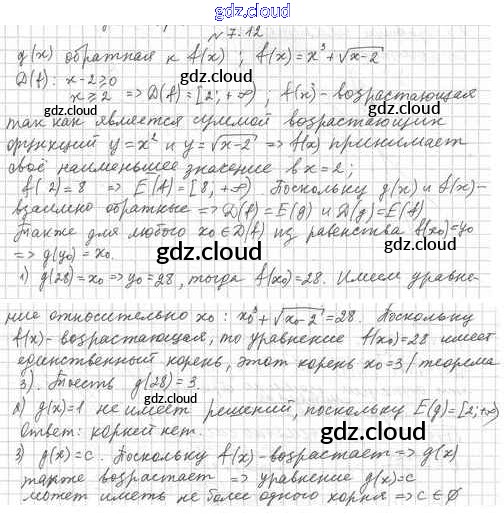 gdz.cloud
№ 7.12
g(x) обратная к f(x) ; f(x) = x³ + √x-2
D(f): x-2 ≥ 0
gdz.cloud
x ≥ 2 => D(f) = [2; +∞) ; f(x) - возрастающая
gdz.cloud
так как является суммой возрастающих
функций y = x² и y = √x-2 => f(x) принимает
своё наименьшее значение в x = 2;
gdz.cloud
f(2) = 8 => E(f) = [8; +∞). Поскольку g(x) и f(x) -
взаимно обратные => D(f) = E(g) и D(g) = E(f)
Также для любого x₀ ∈ D(f) из равенства f(x₀) = y₀
=> g(y₀) = x₀.
gdz.cloud
1) g(28) = x₀ => y₀ = 28, тогда f(x₀) = 28. Имеем уравне-
gdz.cloud
ние относительно x₀ : x₀³ + √x₀-2 = 28. Поскольку
f(x) - возрастающая, то уравнение f(x₀) = 28 имеет
единственный корень, этот корень x₀ = 3 / теорема
3). То есть g(28) = 3.
gdz.cloud
2) g(x) = 1 не имеет решений, поскольку E(g) = [2; +∞)
Ответ: корней нет.
gdz.cloud
3) g(x) = c. Поскольку f(x) - возрастает => g(x)
также возрастает => уравнение g(x) = c
может иметь не более одного корня => c ∈ ∅
gdz.cloud